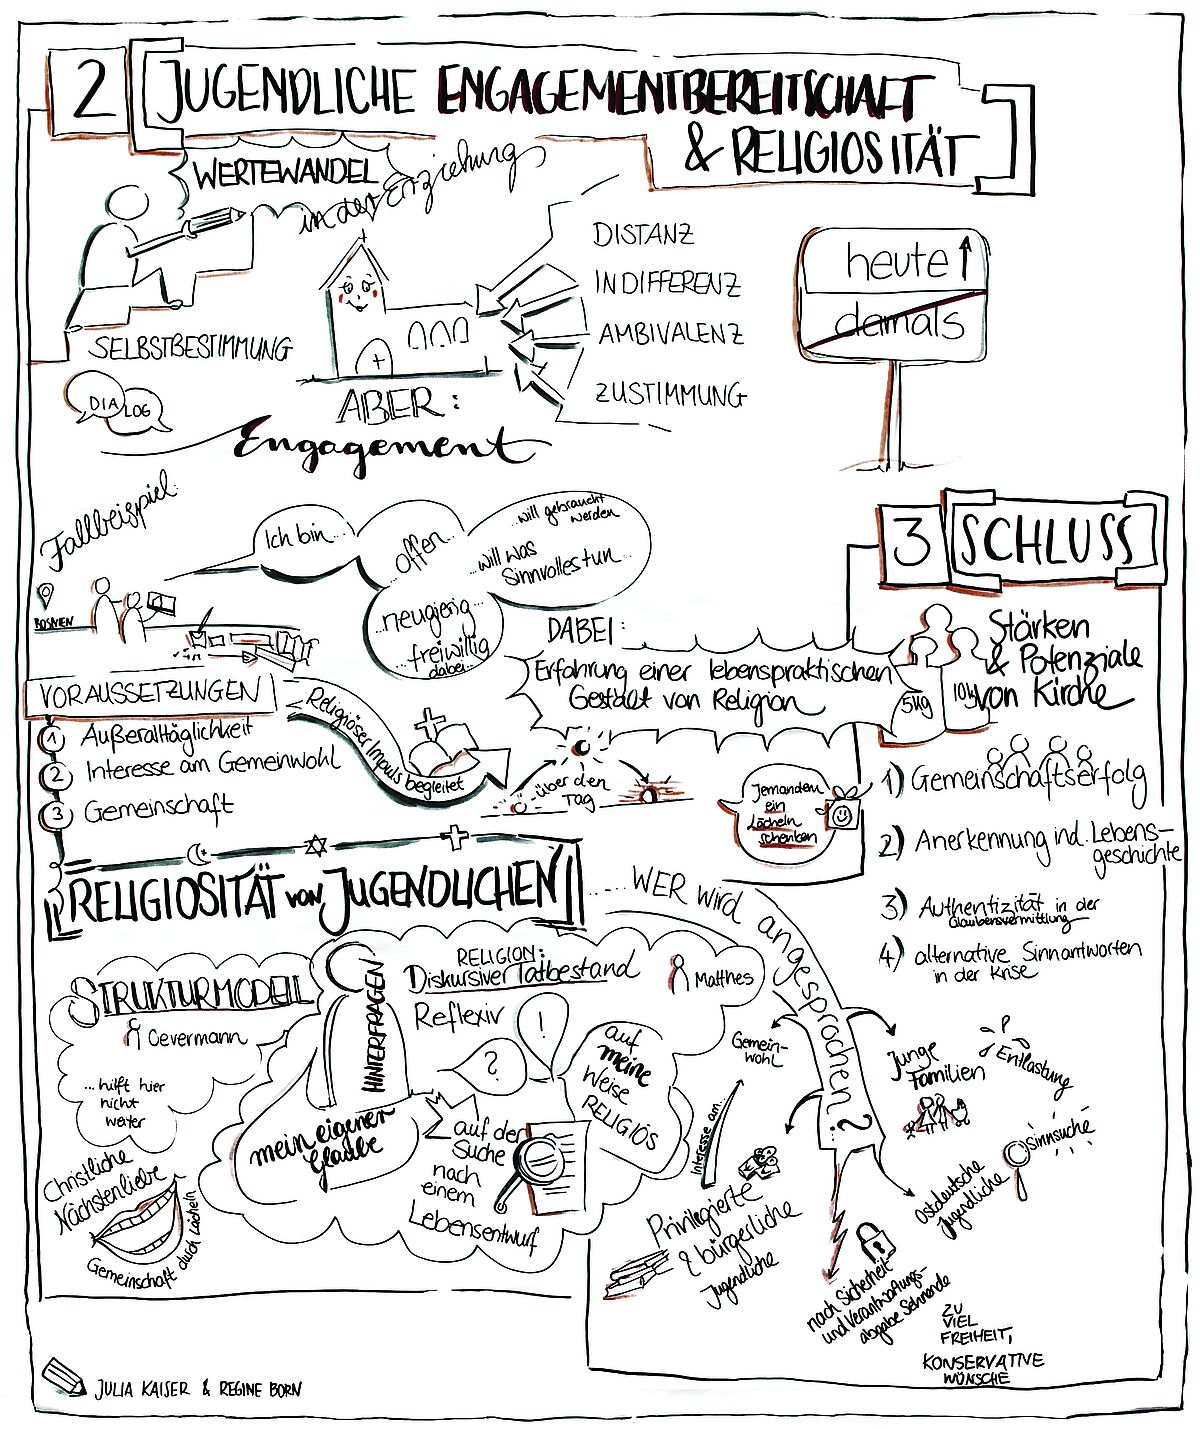 2 JUGENDLICHE ENGAGEMENTBEREITSCHAFT
& RELIGIOSITÄT
WERTEWANDEL
in der Erziehung
SELBSTBESTIMMUNG
DIALOG
DISTANZ
INDIFFERENZ
AMBIVALENZ
ZUSTIMMUNG
heute
damals
ABER:
Engagement
Fallbeispiel:
BOSNIEN
Ich bin...
...offen...
...will gebraucht
werden
...will was
Sinnvolles tun...
...neugierig...
...freiwillig
dabei...
VORAUSSETZUNGEN
1 Außeralltäglichkeit
2 Interesse am Gemeinwohl
3 Gemeinschaft
Religiöser Impuls begleitet
über den
Tag
DABEI:
Erfahrung einer lebenspraktischen
Gestalt von Religion
Jemandem
ein
Lächeln
schenken
3 SCHLUSS
Stärken
& Potenziale
von Kirche
5kg
10kg
1) Gemeinschaftserfolg
2) Anerkennung ind. Lebens-
geschichte
3) Authentizität in der
Glaubensvermittlung
4) alternative Sinnantworten
in der Krise
RELIGIOSITÄT von JUGENDLICHEN
STRUKTURMODELL
Oevermann
...hilft hier
nicht
weiter
HINTERFRAGEN
RELIGION:
Diskursiver Tatbestand
Matthes
Reflexiv
?
!
auf
meine
Weise
RELIGIÖS
mein eigener
Glaube
auf der
Suche
nach
einem
Lebensentwurf
Christliche
Nächstenliebe
Gemeinschaft durch Lächeln
....WER wird angesprochen?
Gemein-
wohl
Interesse am...
Privilegierte
& bürgerliche
Jugendliche
Junge
Familien
Entlastung
Ostdeutsche
Jugendliche
Sinnsuche
nach Sicherheit
und Verantwortungs-
abgabe Sehnende
ZU
VIEL
FREIHEIT,
KONSERVATIVE
WÜNSCHE
JULIA KAISER & REGINE BORN